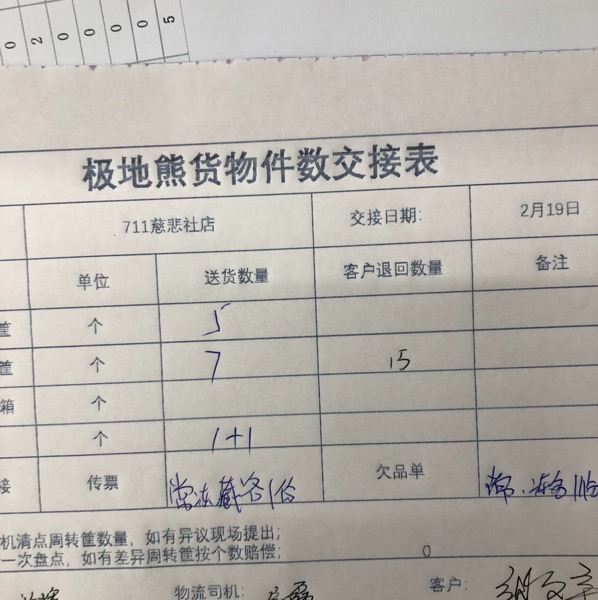 0 2 0 0 0 5
极地熊货物件数交接表
711慈悲社店 交接日期: 2月19日
单位 送货数量 客户退回数量 备注
筐 个 5
筐 个 7 15
箱 个
个 1+1
接 传票 常冻藏各1份 欠品单
机清点周转筐数量，如有异议现场提出；
一次盘点，如有差异周转筐按个数赔偿； 0
物流司机: 客户: